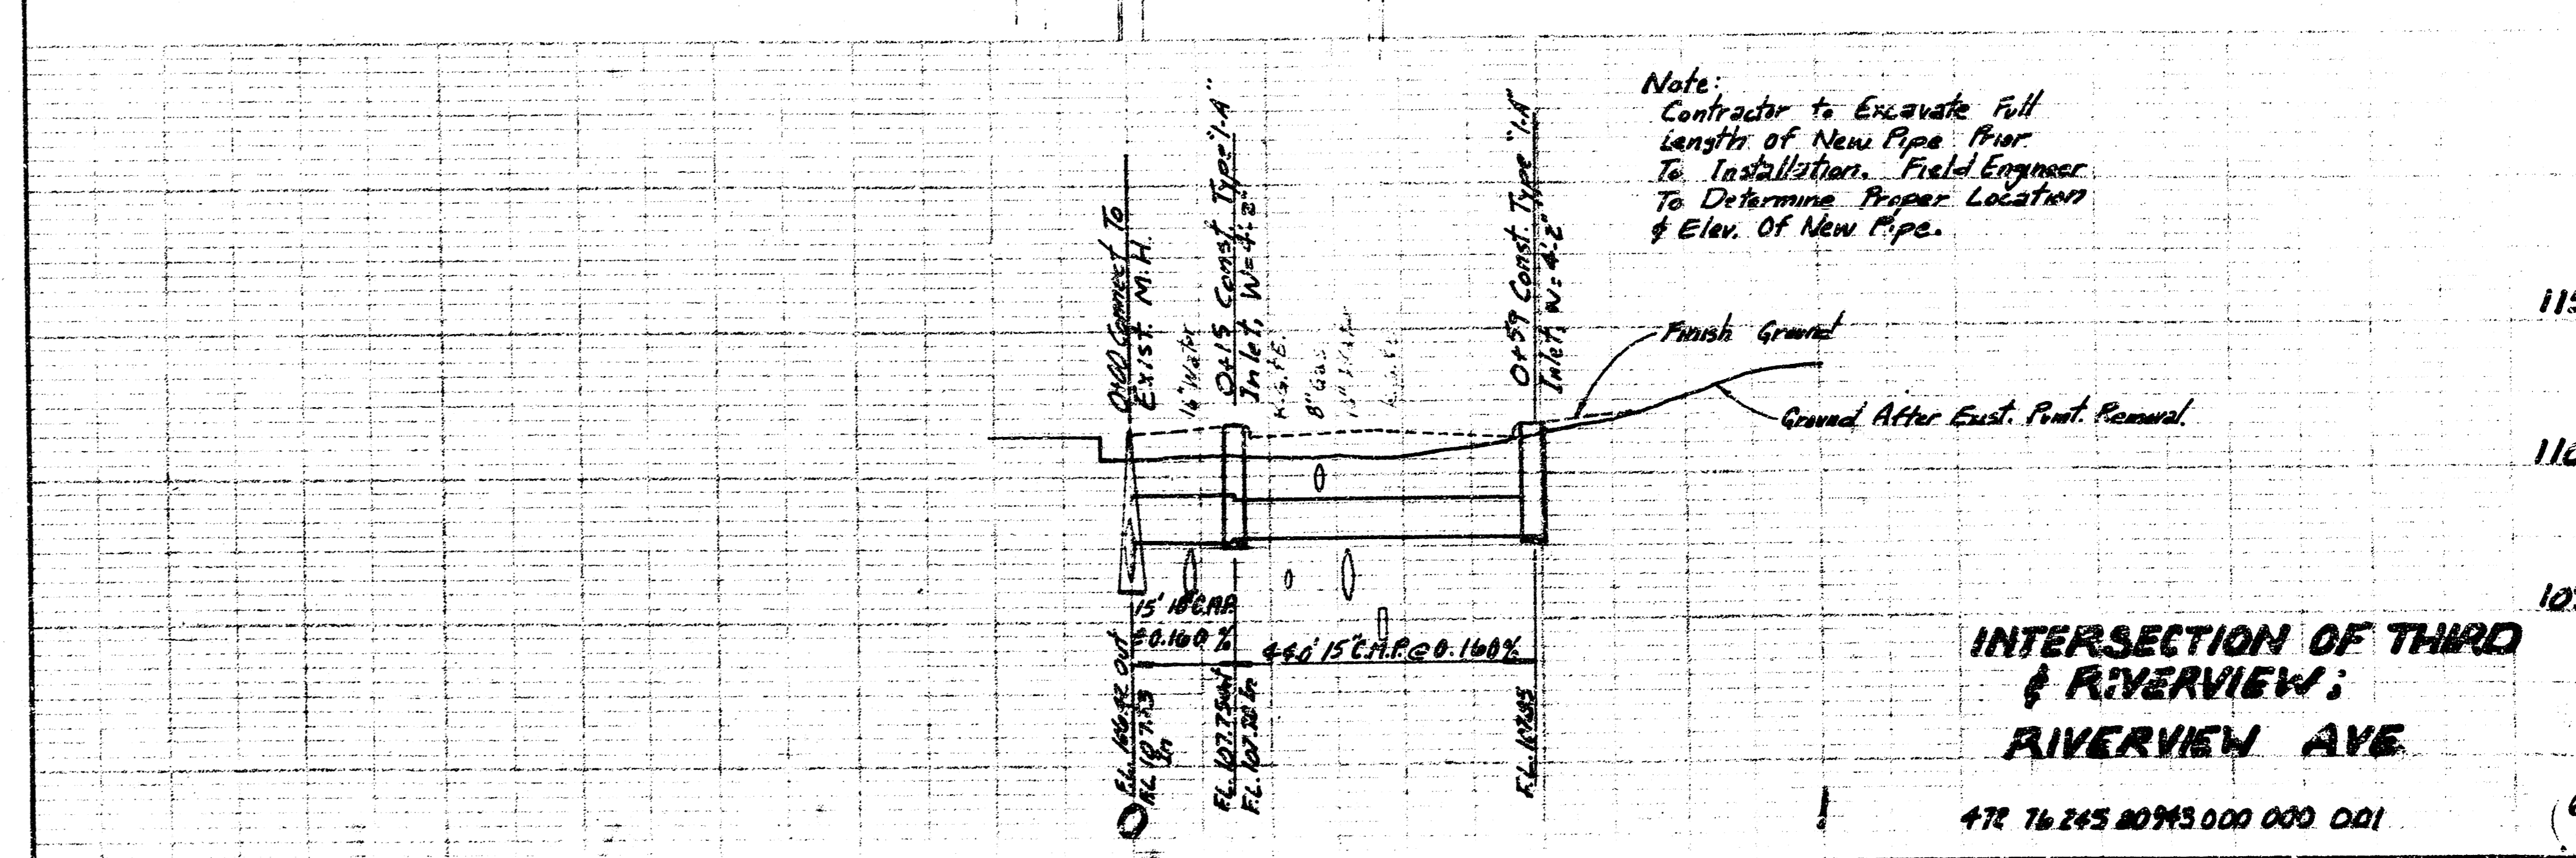 Note:
Contractor to Excavate Full
Length of New Pipe Prior
To Installation. Field Engineer
To Determine Proper Location
& Elev. Of New Pipe.
0+00 Connect To
Exist. M.H.
16" Water
0+15 Const. Type "1-A"
Inlet, W=4'-2"
K.G.&E.
8" Gas
0+59 Const. Type "1-A"
Inlet, W=4'-2"
Finish Ground
Ground After Exist. Pvmt. Removal.
115
110
15' 18" C.M.P.
@ 0.160 %
44.0' 15" C.M.P. @ 0.160%
Out
F.L. 107.73
In
F.L. 107.75 Out
F.L. 107.78 In
F.L. 107.85
INTERSECTION OF THIRD
& RIVERVIEW;
RIVERVIEW AVE
472 76 245 80943 000 000 001